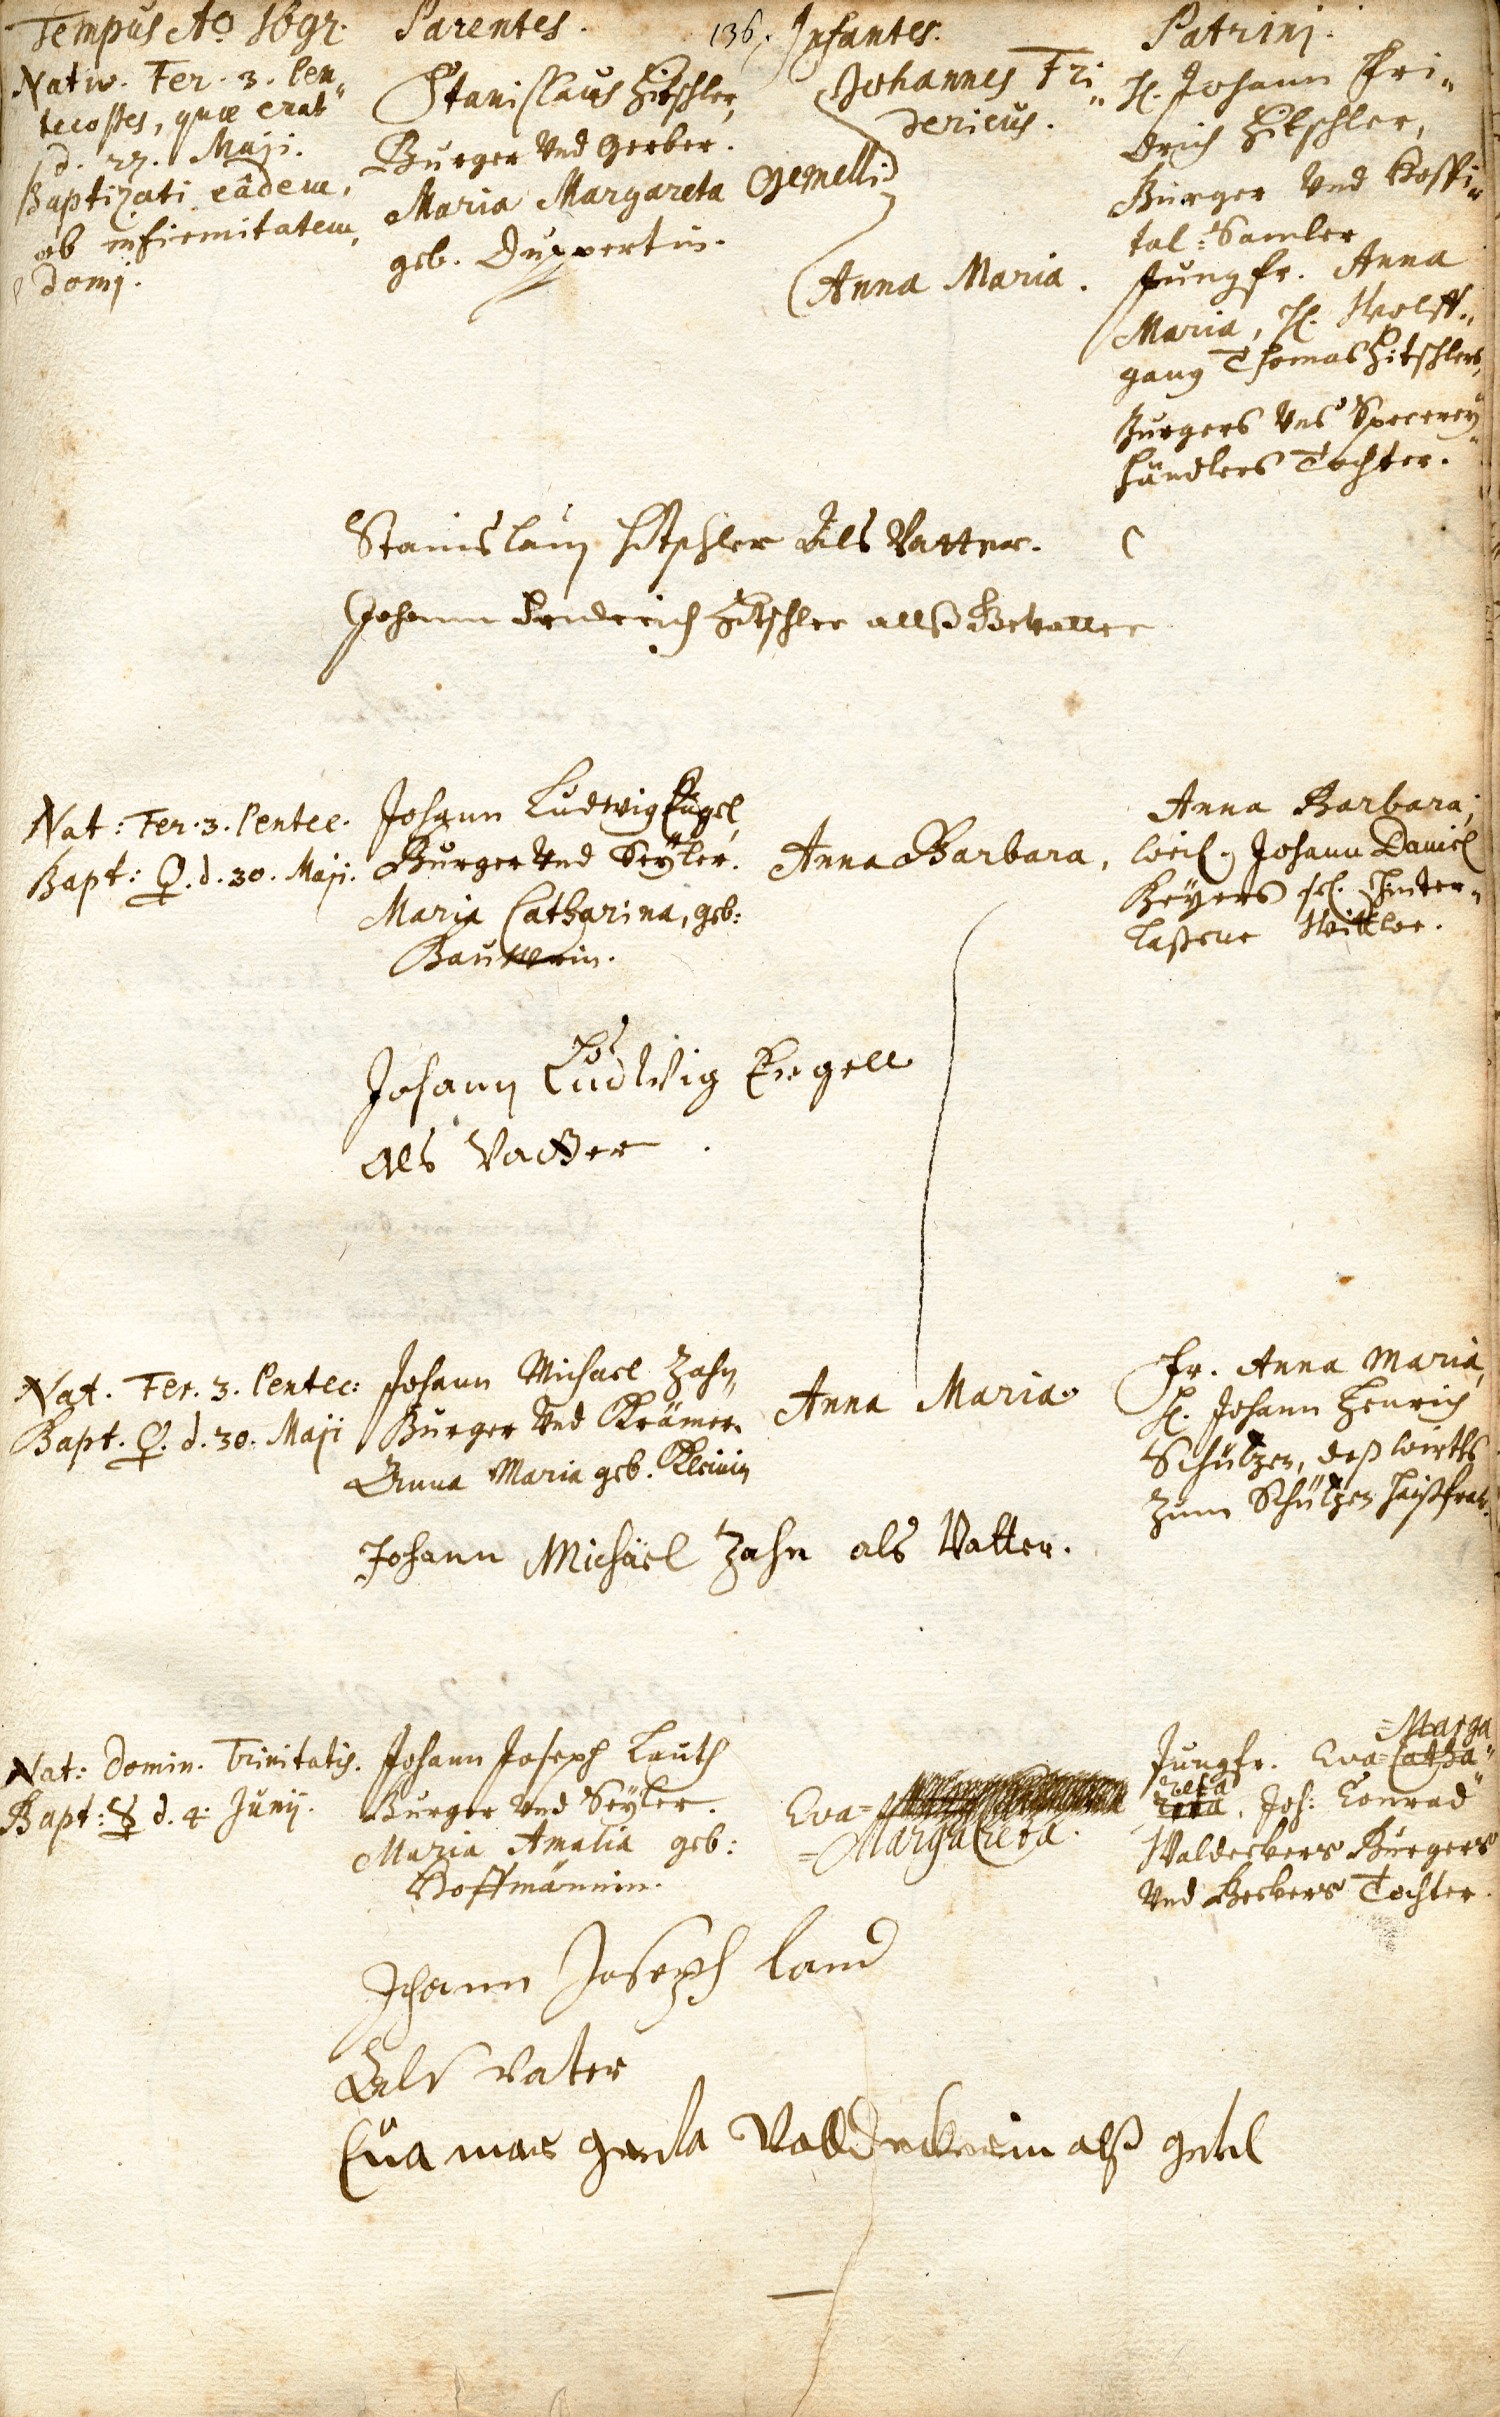 Tempus Ao 1692. Parentes. 136. Infantes. Patrini.
Nativ. Fer. 3. Pen„
tecostes, quæ erat
d. 27. Maji.
Baptizati eâdem,
ob infirmitatem,
domj.
Stanislaus Hitschler,
Burger und Gerber.
Maria Margareta
geb. Duppertin.
Johannes Fri„
dericus.
Gemelli
Anna Maria.
H. Johann Fri„
drich Hitschler,
Burger und Hospi„
tal-Samler
Jungfr. Anna
Maria, H. Wolff„
gang Thomas Hitschlers,
Burgers und Specerey
händlers Tochter.
Stanislaus Hitschler Als Vatter.
Johann Friderich Hitschler allß Gevatter
Nat: Fer. 3. Pentec.
Bapt: ♀. d. 30. Maji.
Johann Ludwig Engel,
Burger und Seyler.
Maria Catharina, geb:
Anna Barbara,
Anna Barbara,
weil. Johann Daniel
Beyers sel. Hinter„
laßene Wittwe.
Johann Ludwig Engell
als Vatter.
Nat. Fer. 3. Pentec:
Bapt. ♀. d. 30. Maji
Johann Michael Zahn,
Burger und Krämer.
Anna Maria geb. Kleinin
Anna Maria.
Fr. Anna Maria,
H. Johann Henrich
Schützen, deß wirths
zum Schützen haißfrau.
Johann Michael Zahn als Vatter.
Nat: Domin. Trinitatis.
Bapt: ☿ d. 4. Junij.
Johann Joseph Lauth
Burger und Seyler.
Maria Amalia geb:
Hoffmännin.
Eva=
=Margareta.
=Marga
Jungfr. Eva=Catha„
reta
rina, Joh: Conrad
Waldeckers Burgers
und Beckers Tochter.
Johann Joseph Laud
Als Vater
Eua mar greda Walldeckerin alß getel